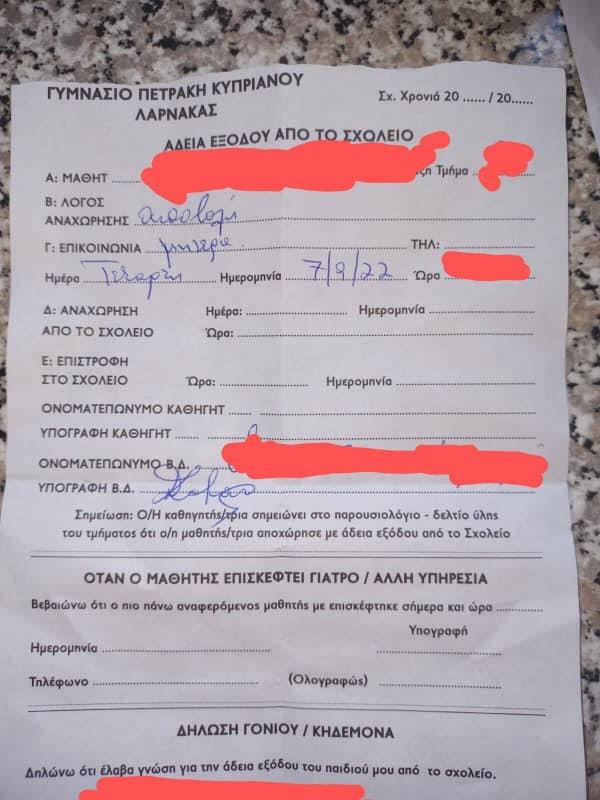 ΓΥΜΝΑΣΙΟ ΠΕΤΡΑΚΗ ΚΥΠΡΙΑΝΟΥ
ΛΑΡΝΑΚΑΣ
Σχ. Χρονιά 20 ...... / 20......
ΑΔΕΙΑ ΕΞΟΔΟΥ ΑΠΟ ΤΟ ΣΧΟΛΕΙΟ
Α: ΜΑΘΗΤ ...... Τμήμα ..
Β: ΛΟΓΟΣ
ΑΝΑΧΩΡΗΣΗΣ αποβολή
Γ: ΕΠΙΚΟΙΝΩΝΙΑ μητέρα ΤΗΛ: ......
Ημέρα Τετάρτη Ημερομηνία 7/9/22 Ώρα
Δ: ΑΝΑΧΩΡΗΣΗ Ημέρα: ...... Ημερομηνία ......
ΑΠΟ ΤΟ ΣΧΟΛΕΙΟ Ώρα: ......
Ε: ΕΠΙΣΤΡΟΦΗ
ΣΤΟ ΣΧΟΛΕΙΟ Ώρα: ...... Ημερομηνία ......
ΟΝΟΜΑΤΕΠΩΝΥΜΟ ΚΑΘΗΓΗΤ ...... ......
ΥΠΟΓΡΑΦΗ ΚΑΘΗΓΗΤ ...... ......
ΟΝΟΜΑΤΕΠΩΝΥΜΟ Β.Δ. ......
ΥΠΟΓΡΑΦΗ Β.Δ. ......
Σημείωση: Ο/Η καθηγητής/τρια σημειώνει στο παρουσιολόγιο - δελτίο ύλης
του τμήματος ότι ο/η μαθητής/τρια αποχώρησε με άδεια εξόδου από το Σχολείο
ΟΤΑΝ Ο ΜΑΘΗΤΗΣ ΕΠΙΣΚΕΦΤΕΙ ΓΙΑΤΡΟ / ΑΛΛΗ ΥΠΗΡΕΣΙΑ
Βεβαιώνω ότι ο πιο πάνω αναφερόμενος μαθητής με επισκέφτηκε σήμερα και ώρα ......
Υπογραφή
Ημερομηνία ...... ......
Τηλέφωνο ...... (Ολογραφώς) ......
ΔΗΛΩΣΗ ΓΟΝΙΟΥ / ΚΗΔΕΜΟΝΑ
Δηλώνω ότι έλαβα γνώση για την άδεια εξόδου του παιδιού μου από το σχολείο.